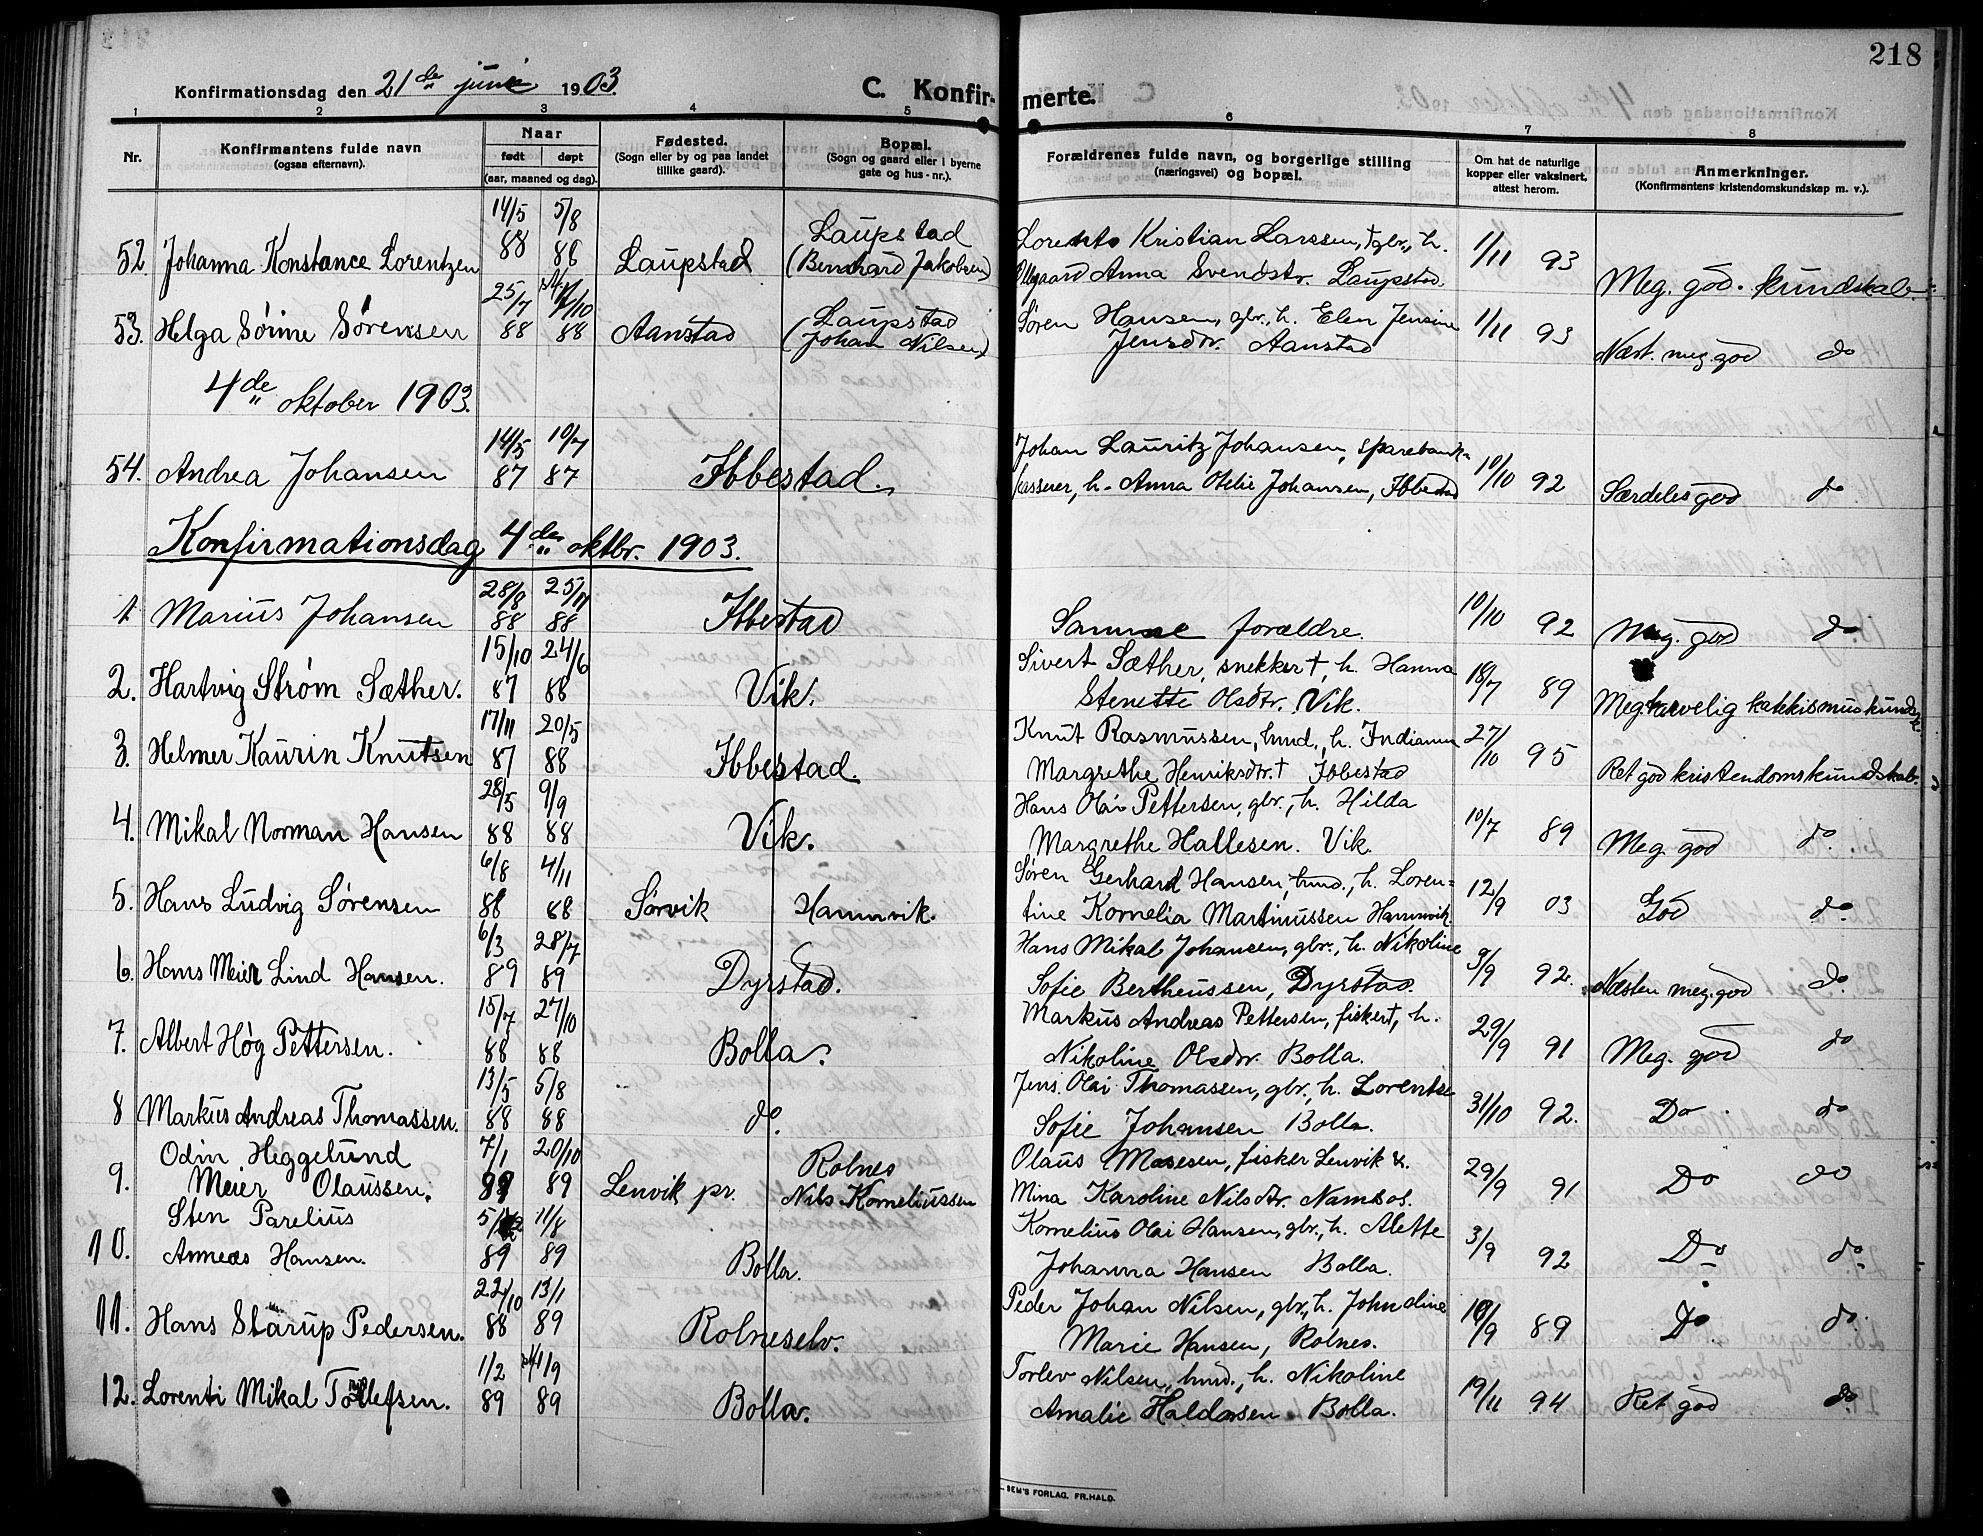 218
Konfirmationsdag den 21de juni 1903.
C. Konfir- merte.
1 2 3 4 5 6 7 8
Nr.
Konfirmantens fulde navn
(ogsaa efternavn).
Naar
født døpt
(aar, maaned og dag).
Fødested.
(Sogn eller by og paa landet
tillike gaard).
Bopæl.
(Sogn og gaard eller i byerne
gate og hus-nr.).
Forældrenes fulde navn, og borgerlige stilling
(næringsvei) og bopæl.
Om hat de naturlige
kopper eller vaksinert,
attest herom.
Anmerkninger.
(Konfirmantens kristendomskundskap m. v.).
14/5 5/8 Laupstad Lorents Kristian Larssen, † gbr., h. 1/11 93
52 Johanna Konstance Lorentzen 88 88 Laupstad (Bernhard Jakobsen) Anna Svendsdtr. Laupstad. Meg. god. kundskab
25/7 7/10 Laupstad Søren Hansen, gbr., h. Elen Jensine 1/11 93
53. Helga Sørine Sørensen 88 88 Aanstad (Johan Nilsen) Jensdtr. Aanstad Næst. meg. god do
4de oktober 1903.
14/5 10/7 Johan Lauritz Johansen, sparebank-
54. Andrea Johansen 87 87 Ibbestad. kasserer, h. Anna Otelie Johansen, Ibbestad 10/10 92 Særdeles god do
Konfirmationsdag 4de oktbr. 1903.
28/8 25/11
1 Marius Johansen 88 88 Ibbestad Samme forældre. 10/10 92 Meg. god do
15/10 24/6 Sivert Sæther, snekker †, h. Hanna
2. Hartvig Strøm Sæther. 87 88 Vik. Stenette Olsdtr. Vik. 18/7 89 Meg katekismuskundsk.
17/11 20/5 Knut Rasmussen, hmd., h. Indianna
3. Helmer Kaurin Knutsen 87 88 Ibbestad. Margrethe Henriksdtr. † Ibbestad 27/10 95 Ret god kristendomskundskab.
28/5 9/9 Hans Olai Pettersen, gbr., h. Hilda
4. Mikal Norman Hansen 88 88 Vik. Margrethe Hallesen. Vik. 10/7 89 Meg. god do.
6/8 4/11 Søren Gerhard Hansen, hmd., h. Loren=
5. Hans Ludvig Sørensen 88 88 Sørvik Hamnvik. tine Kornelia Martinussen Hamnvik. 12/9 03 God do.
6/3 28/7 Hans Mikal Johansen, gbr., h. Nikoline
6. Hans Meier Lind Hansen. 89 89 Dyrstad. Sofie Bertheussen, Dyrstad 9/9 92. Næsten meg. god do
15/7 27/10 Markus Andreas Pettersen, fisker †, h.
7. Albert Høg Pettersen. 88 88 Bolla. Nikoline Olsdtr. Bolla. 29/9 91 Meg. god do
13/5 5/8 Jens Olai Thomassen, gbr., h. Lorentse
8 Markus Andreas Thomassen. 88 88 do. Sofie Johansen Bolla. 31/10 92. Do do
Odin Heggelund 7/1 20/10 Rolnes Olaus Mosesen, fisker Lenvik &.
9. Meier Olaussen. 89 89 Lenvik pr. Nils Korneliussen Mina Karoline Nilsdtr. Namsos. 29/9 91 Do do
Sten Parelius 11/8 Kornelius Olai Hansen, gbr., h. Alette
10. Anneas Hansen. 89 89 Bolla. Johanna Hansen Bolla. 3/9 92 Do do
22/10 13/1 Peder Johan Nilsen, gbr., h. Johndine
11. Hans Starup Pedersen. 88 89 Rolneselv. Marie Hansen, Rolnes. 10/9 89 Do do
1/2 1/9 Torlev Nilsen, hmd., h. Nikoline
12. Lorenti Mikal Tollefsen. 89 89 Bolla. Amalie Haldorsen Bolla. 19/11 94 Ret god do
SEM'S FORLAG. FR.HALD.